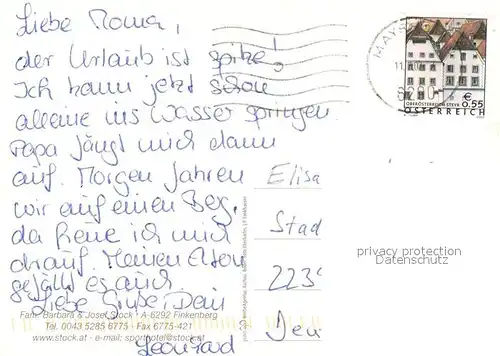 Liebe Roma,
der Urlaub ist spitze!
Ich kann jetzt schon
alleine ins Wasser springen
Papa fängt mich dann
auf. Morgen fahren
wir auf einen Berg,
da freue ich mich
drauf. Meinen Eltern
gefällt es auch.
Liebe Grüße Dein
Leonhard
Fam. Barbara & Josef Stock · A-6292 Finkenberg
Tel. 0043 5285 6775 · Fax 6775-421
www.stock.at · e-mail: sporthotel@stock.at
MAYR
11.
6290
€
0,55
OBERÖSTERREICH STEYR
ÖSTERREICH
Elisa
Stad
223
Jen
privacy protection
Datenschutz